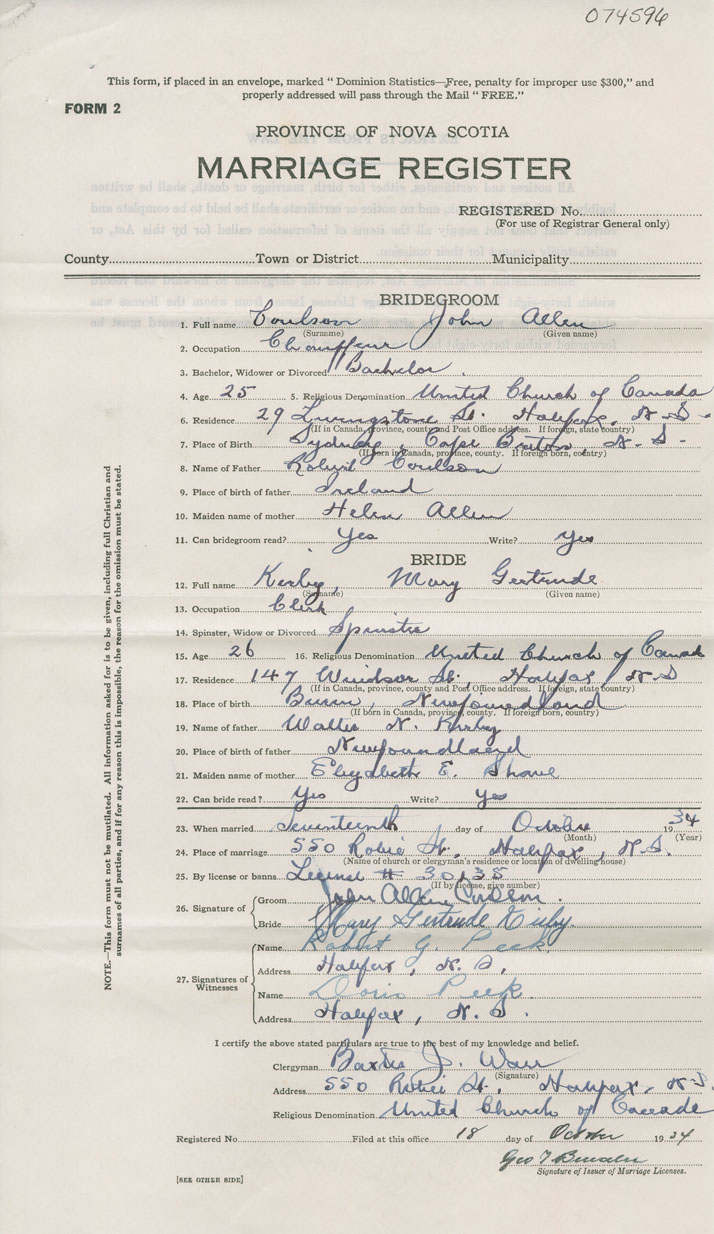 074596
This form, if placed in an envelope, marked “ Dominion Statistics—Free, penalty for improper use $300,” and
properly addressed will pass through the Mail “ FREE.”
FORM 2
PROVINCE OF NOVA SCOTIA
MARRIAGE REGISTER
REGISTERED No.
(For use of Registrar General only)
County Town or District Municipality
BRIDEGROOM
1. Full name Coulson John Allen
(Surname) (Given name)
2. Occupation Chauffeur
3. Bachelor, Widower or Divorced Bachelor
4. Age 25 5. Religious Denomination United Church of Canada
6. Residence 29 Livingstone St. Halifax, N.S.
(If in Canada, province, county and Post Office address. If foreign, state country)
7. Place of Birth Sydney, Cape Breton N.S.
(If born in Canada, province, county. If foreign born, country)
8. Name of Father Coulson
9. Place of birth of father Ireland
10. Maiden name of mother Helen Allen
11. Can bridegroom read? Yes Write? Yes
BRIDE
12. Full name Kirby, Mary Gertrude
(Surname) (Given name)
13. Occupation Clerk
14. Spinster, Widow or Divorced Spinster
15. Age 26 16. Religious Denomination United Church of Canada
17. Residence 147 Windsor St. Halifax N.S
(If in Canada, province, county and Post Office address. If foreign, state country)
18. Place of birth Burin, Newfoundland
(If born in Canada, province, county. If foreign born, country)
19. Name of father Walter N. Kirby
20. Place of birth of father Newfoundland
21. Maiden name of mother Elizabeth E. Shave
22. Can bride read? Yes Write? Yes
23. When married Seventeenth day of October 1934
(Month) (Year)
24. Place of marriage 550 Robie St., Halifax, N.S.
(Name of church or clergyman's residence or location of dwelling house)
25. By license or banns License # 30135
(If by license, give number)
26. Signature of
Groom John Allen Coulson
Bride Mary Gertrude Kirby
27. Signatures of
Witnesses
Name Robert G. Peek
Address Halifax, N.S.
Name Doris Peek
Address Halifax, N.S.
I certify the above stated particulars are true to the best of my knowledge and belief.
Clergyman Baxter J. Warr
(Signature)
Address 550 Robie St., Halifax, N.S.
Religious Denomination United Church of Canada
Registered No. Filed at this office 18 day of October 1934
Geo T
Signature of Issuer of Marriage Licenses.
[SEE OTHER SIDE]
NOTE.—This form must not be mutilated. All information asked for is to be given, including full Christian and
surnames of all parties, and if for any reason this is impossible, the reason for the omission must be stated.